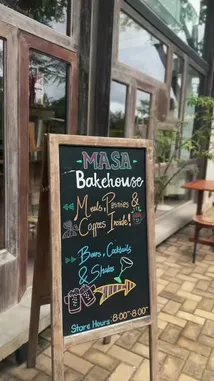 MASA
Bakehouse
Meals, Pannies &
Coffees Inside!
Beers, Cocktails
& Shakes
Store Hours: 8:00-8:00